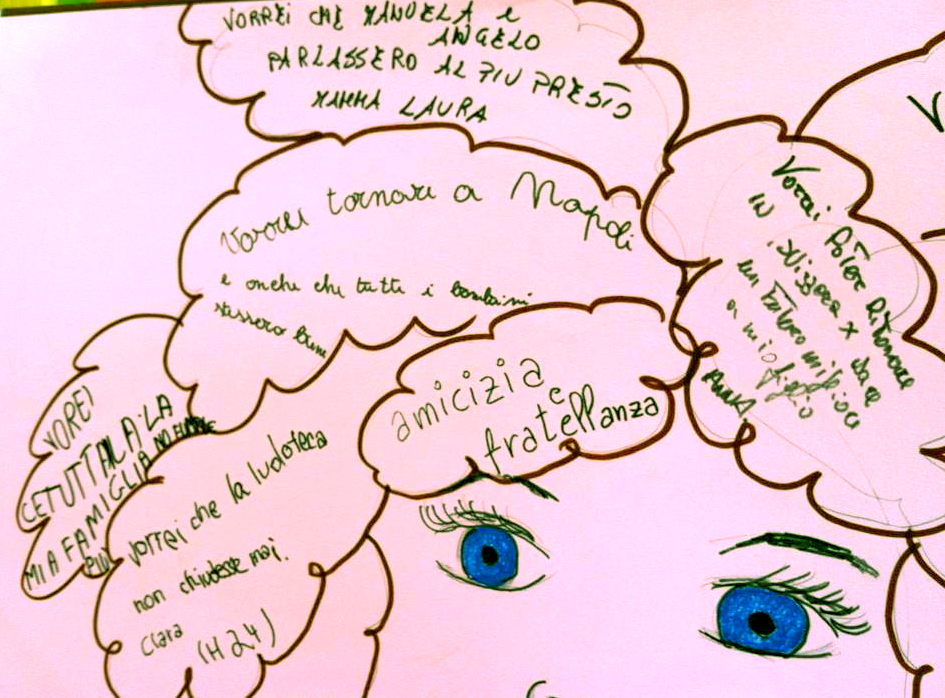 VORREI CHE MANUELA e
ANGELO
PARLASSERO AL PIU PRESTO
MAMMA LAURA
Vorrei tornare a Napoli
e anche che tutti i bambini
stessero bene
Vorrei Poter Ritornare
IN SVIZZERA X dare
un futuro migliore
a mio figlio
ANNA
amicizia
e
fratellanza
VOREI
CETUTTAL A LA
MIA FAMIGLIA NO FUMARE
PIÙ
vorrei che la ludoteca
non chiudesse mai.
Clara (H24)
V